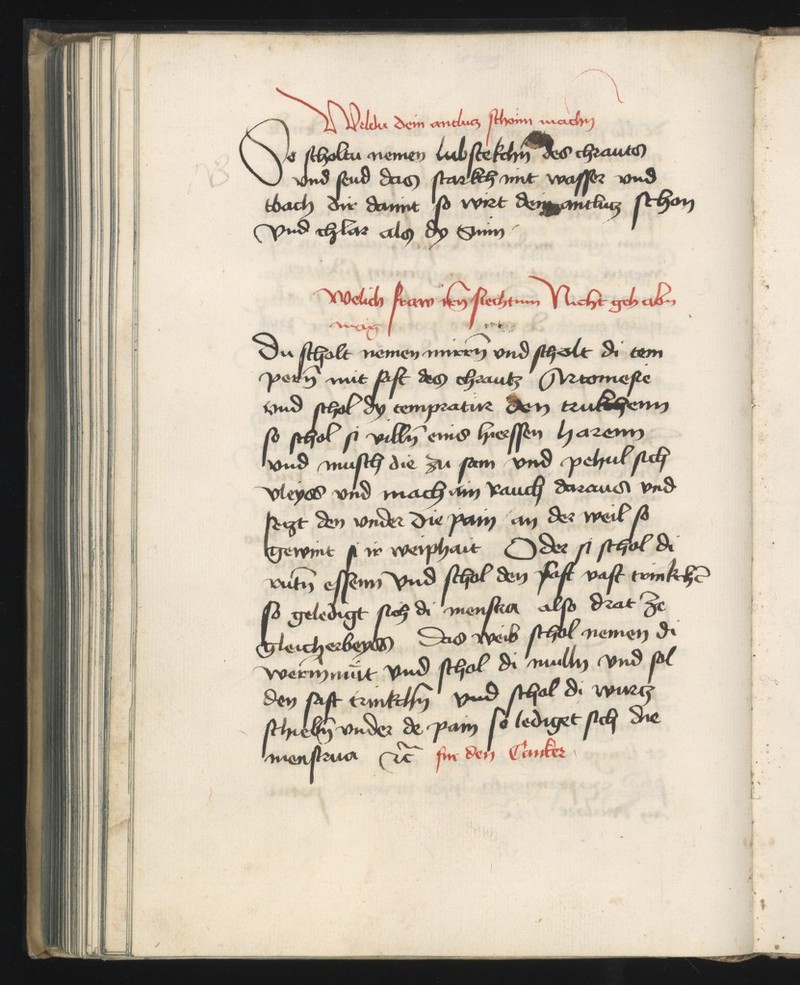 Welstu dein antlucz schoin machn
So scholtu nemen lubstekchn des chrauts
und send das starkch mit wasser und
tbach dir damit so wirt dein antlucz schon
und chlar als dy Sunn
Welich fraw irn slechtum Nicht gehabn
mag
Du scholt nemen mirrn und scholt di tem
pern mit saft des chrautz Artomesie
und schol dy tempratur den trukhenn
so schol si villn eins hierssen harenn
und misch die zu sam und pehul sich
vleyss und mach ain rauch daraus und
secz den under die pain an der weil so
gewint si ir weiphait Oder si schol di
rutn essenn und schol den saft vast trinkhn
so geledigt sich di menstra also drat ze
gleicherbeyss Das weib schol nemen di
wermmüt und schol di mulln und sol
den saft trinkchn und schol di wurcz
schiebn under de pain so lediget sich die
menstrua etc fur den Canker